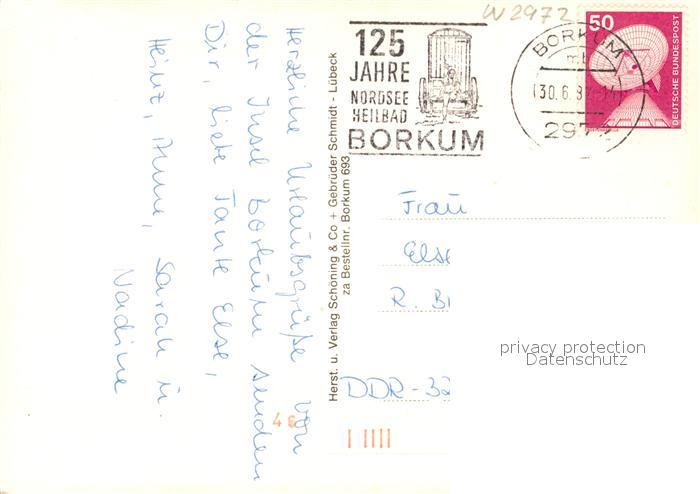 Herzliche Urlaubsgrüße von
der Insel Borkum senden
Dir, liebe Tante Else,
Heinz, Anne, Sarah u.
Nadine
Herst. u. Verlag Schöning & Co + Gebrüder Schmidt - Lübeck
za Bestellnr. Borkum 693
W2972
125
JAHRE
NORDSEE
HEILBAD
BORKUM
BORKUM
30.6.
297
50
DEUTSCHE BUNDESPOST
Frau
Else
R. B
DDR-32
privacy protection
Datenschutz
46